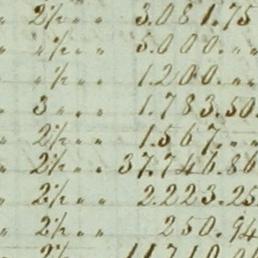 2½ „ „ 3.081.75
„ ½ „ „ 5.000. „ „
„ ½ „ „ 1.200. „ „
3 „ „ „ 1.783.50
2½ „ „ 1.567. „ „
2½ „ „ 37.746.86
2½ „ „ 2.223.25
2½ „ „ 250.94
2½ „ „